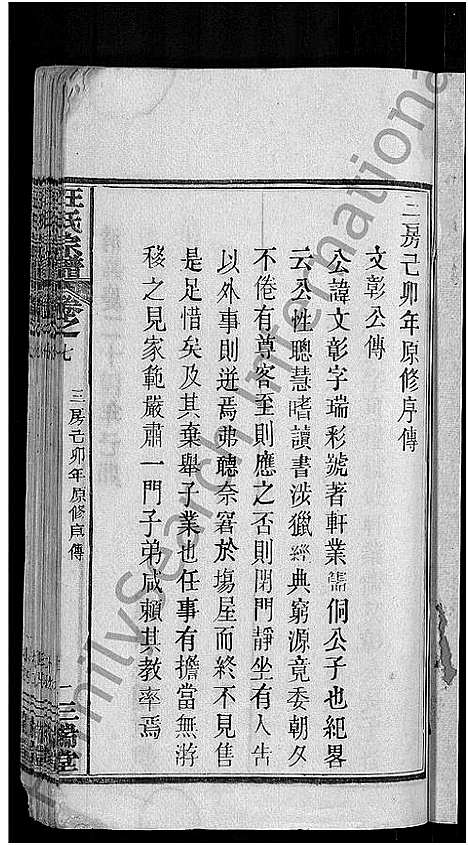 三房己卯年原修序傳
文彰公傳
公諱文彰字瑞彩號著軒業儒侗公子也紀畧
云公性聰慧嗜讀書涉獵經典窮源竟委朝夕
不倦有尊客至則應之否則閉門靜坐有人告
以外事則迸焉弗聽奈窘於塲屋而終不見售
是足惜矣及其棄舉子業也任事有擔當無游
移之見家範嚴肅一門子弟咸賴其教率焉
汪氏宗譜 卷之七
三房己卯年原修序傳
一
FamilySearch International